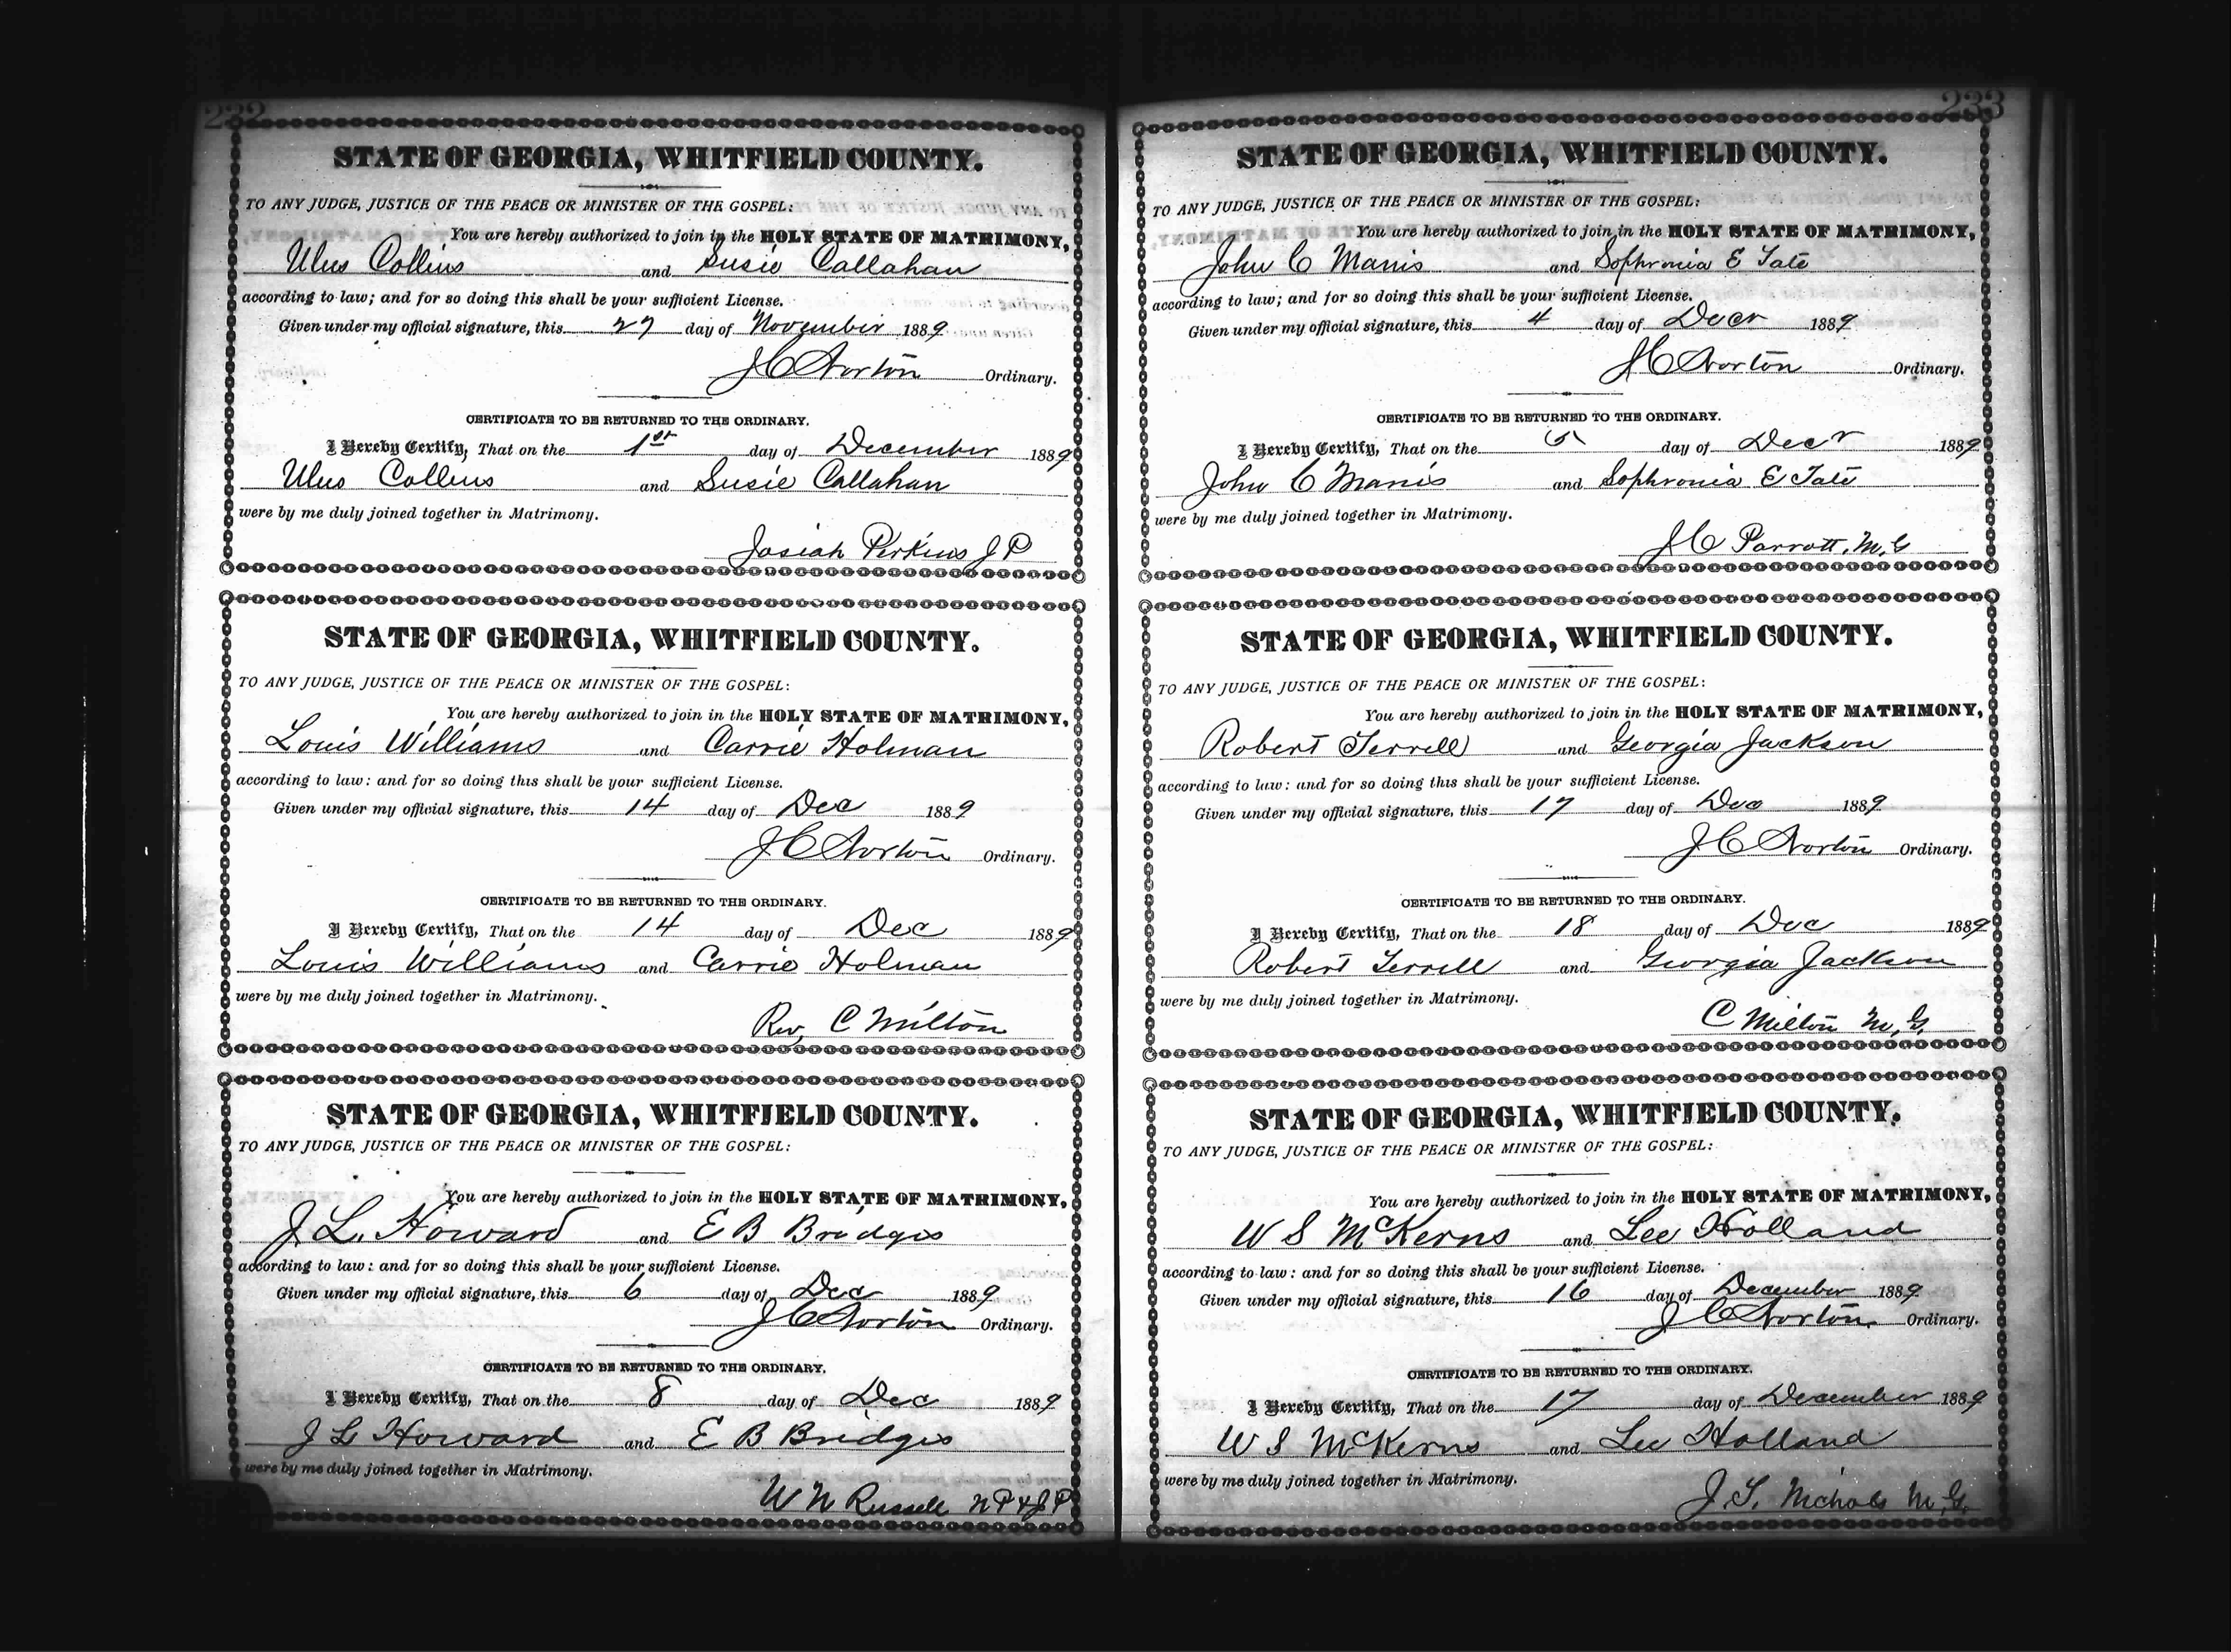 232
STATE OF GEORGIA, WHITFIELD COUNTY.
TO ANY JUDGE, JUSTICE OF THE PEACE OR MINISTER OF THE GOSPEL:
You are hereby authorized to join in the HOLY STATE OF MATRIMONY,
Ulus Collins and Susie Callahan
according to law; and for so doing this shall be your sufficient License.
Given under my official signature, this 27 day of November 1889
J C Norton Ordinary.
CERTIFICATE TO BE RETURNED TO THE ORDINARY.
I Hereby Certify, That on the 1st day of December 1889
Ulus Collins and Susie Callahan
were by me duly joined together in Matrimony.
Josiah Perkins J P
STATE OF GEORGIA, WHITFIELD COUNTY.
TO ANY JUDGE, JUSTICE OF THE PEACE OR MINISTER OF THE GOSPEL:
You are hereby authorized to join in the HOLY STATE OF MATRIMONY,
Louis Williams and Carrie Holman
according to law: and for so doing this shall be your sufficient License.
Given under my official signature, this 14 day of Dec 1889
J C Norton Ordinary.
CERTIFICATE TO BE RETURNED TO THE ORDINARY.
I Hereby Certify, That on the 14 day of Dec 1889
Louis Williams and Carrie Holman
were by me duly joined together in Matrimony.
Rev, C Milton
STATE OF GEORGIA, WHITFIELD COUNTY.
TO ANY JUDGE, JUSTICE OF THE PEACE OR MINISTER OF THE GOSPEL:
You are hereby authorized to join in the HOLY STATE OF MATRIMONY,
J. L. Howard and E B Bridges
according to law: and for so doing this shall be your sufficient License.
Given under my official signature, this 6 day of Dec 1889
J C Norton Ordinary.
CERTIFICATE TO BE RETURNED TO THE ORDINARY.
I Hereby Certify, That on the 8 day of Dec 1889
J L Howard and E B Bridges
were by me duly joined together in Matrimony.
W N Russell N P & J P
233
STATE OF GEORGIA, WHITFIELD COUNTY.
TO ANY JUDGE, JUSTICE OF THE PEACE OR MINISTER OF THE GOSPEL:
You are hereby authorized to join in the HOLY STATE OF MATRIMONY,
John C Manis and Sophronia E Tate
according to law; and for so doing this shall be your sufficient License.
Given under my official signature, this 4 day of Decr 1889
J C Norton Ordinary.
CERTIFICATE TO BE RETURNED TO THE ORDINARY.
I Hereby Certify, That on the 5 day of Decr 1889
John C Manis and Sophronia E Tate
were by me duly joined together in Matrimony.
J C Parrott, M. G
STATE OF GEORGIA, WHITFIELD COUNTY.
TO ANY JUDGE, JUSTICE OF THE PEACE OR MINISTER OF THE GOSPEL:
You are hereby authorized to join in the HOLY STATE OF MATRIMONY,
Robert Terrell and Georgia Jackson
according to law: and for so doing this shall be your sufficient License.
Given under my official signature, this 17 day of Dec 1889
J C Norton Ordinary.
CERTIFICATE TO BE RETURNED TO THE ORDINARY.
I Hereby Certify, That on the 18 day of Dec 1889
Robert Terrell and Georgia Jackson
were by me duly joined together in Matrimony.
C Milton M. G.
STATE OF GEORGIA, WHITFIELD COUNTY.
TO ANY JUDGE, JUSTICE OF THE PEACE OR MINISTER OF THE GOSPEL:
You are hereby authorized to join in the HOLY STATE OF MATRIMONY,
W S McKerns and Lee Holland
according to law: and for so doing this shall be your sufficient License.
Given under my official signature, this 16 day of December 1889
J C Norton Ordinary.
CERTIFICATE TO BE RETURNED TO THE ORDINARY.
I Hereby Certify, That on the 17 day of December 1889
W S McKerns and Lee Holland
were by me duly joined together in Matrimony.
J. S. Nichols M. G.